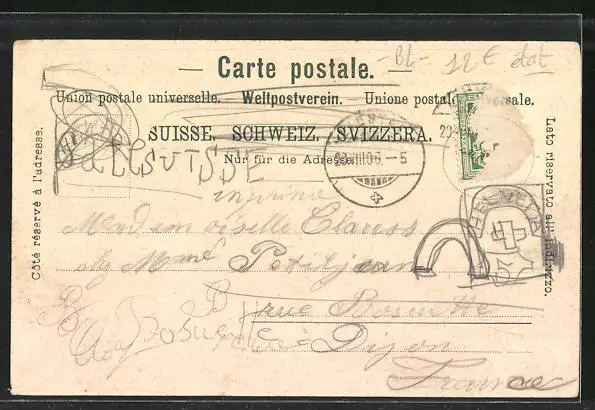 - BL - 12 € état
— Carte postale. —
Union postale universelle. — Weltpostverein. — Unione postale universale.
SUISSE. SCHWEIZ. SVIZZERA.
Nur für die Adresse.
VIII 06. - 5
SUISSE
imprimé
Côté réservé à l'adresse.
Lato riservato all'indirizzo.
HELVETIA
Mademoiselle Clauss
Mme Petitjean
rue Bossuet
Dijon
France